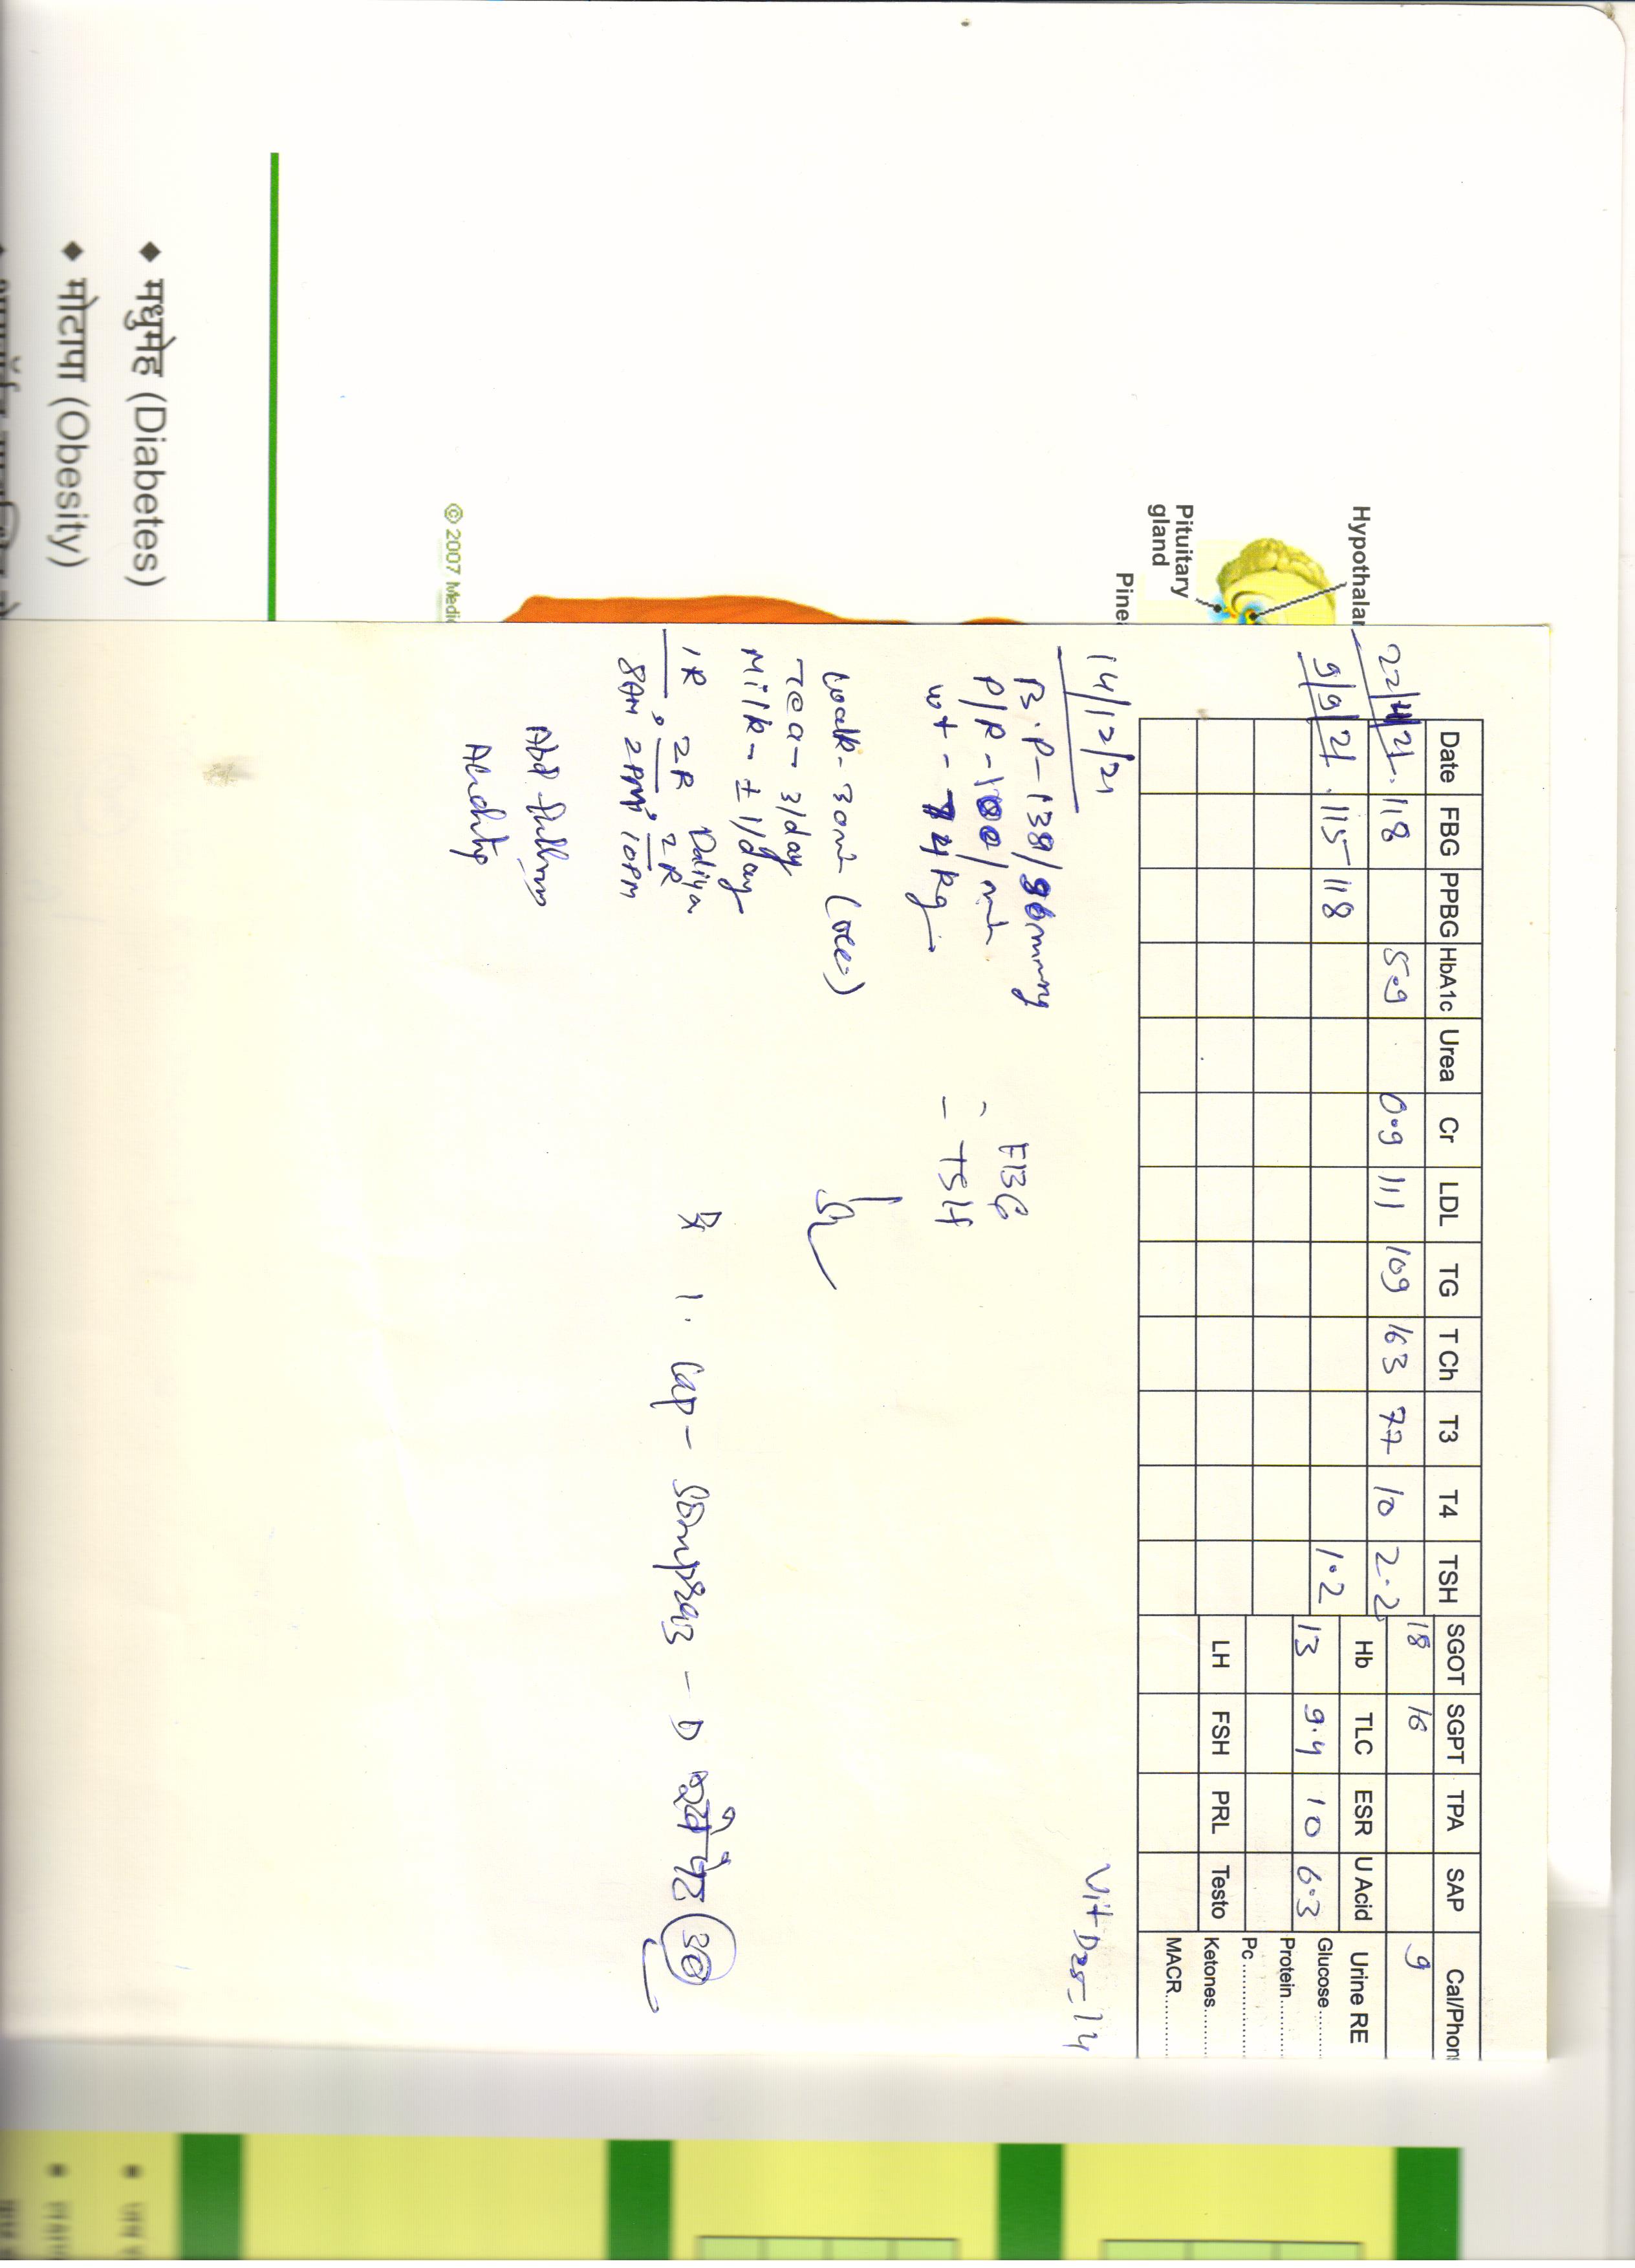 Hypothalar
Pituitary
gland
Pine
© 2007 Medi
◆ मधुमेह (Diabetes)
◆ मोटापा (Obesity)
Date FBG PPBG HbA1c Urea Cr LDL TG T Ch T3 T4 TSH SGOT SGPT TPA SAP Cal/Phon
18 16 9
22/11/21. 118 5.9 0.9 111 109 163 77 10 2.2
Hb TLC ESR U Acid Urine RE
9/9/21 . 115 118 1.2
13 9.4 10 6.3 Glucose.........
Protein.........
Pc.............
LH FSH PRL Testo Ketones.........
MACR.........
14/12/21 Vit D25 - 14
B.P - 138/90mmHg
P/R - 100/min
wt - 74 kg
- FBG
- TSH
Walk - 30min (occ)
Tea - 3/day
Milk - ± 1/day
1R 2R Daliya 2R
8AM 2PM 10PM
Rx 1. Cap - Sompraz - D
30
Abd fullness
Acidity